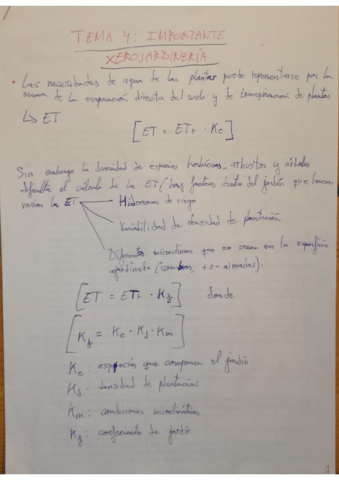 TEMA 4: IMPORTANTE
XEROJARDINERÍA
• Las necesidades de agua de las plantas puede representarse por la
suma de la evaporación directa del suelo y de transpiración de plantas
↳ ET
[ET = ETr · Kc]
Sin embargo la densidad de especies herbáceas, arbustos y árboles
dificulta el cálculo de la ET (hay factores dentro del jardín que hacen
variar la ET
Hidrozonas de riego
Variabilidad de densidad de plantación
Diferentes microclimas que se crean en la superficie
ajardinada (sombra, + o - aireadas).
[ET = ETr · Kj] donde
[Kj = Ke · Kd · Km]
Ke: especies que componen el jardín
Kd: densidad de plantación
Km: condiciones microclimáticas
Kj: coeficiente de jardín
1